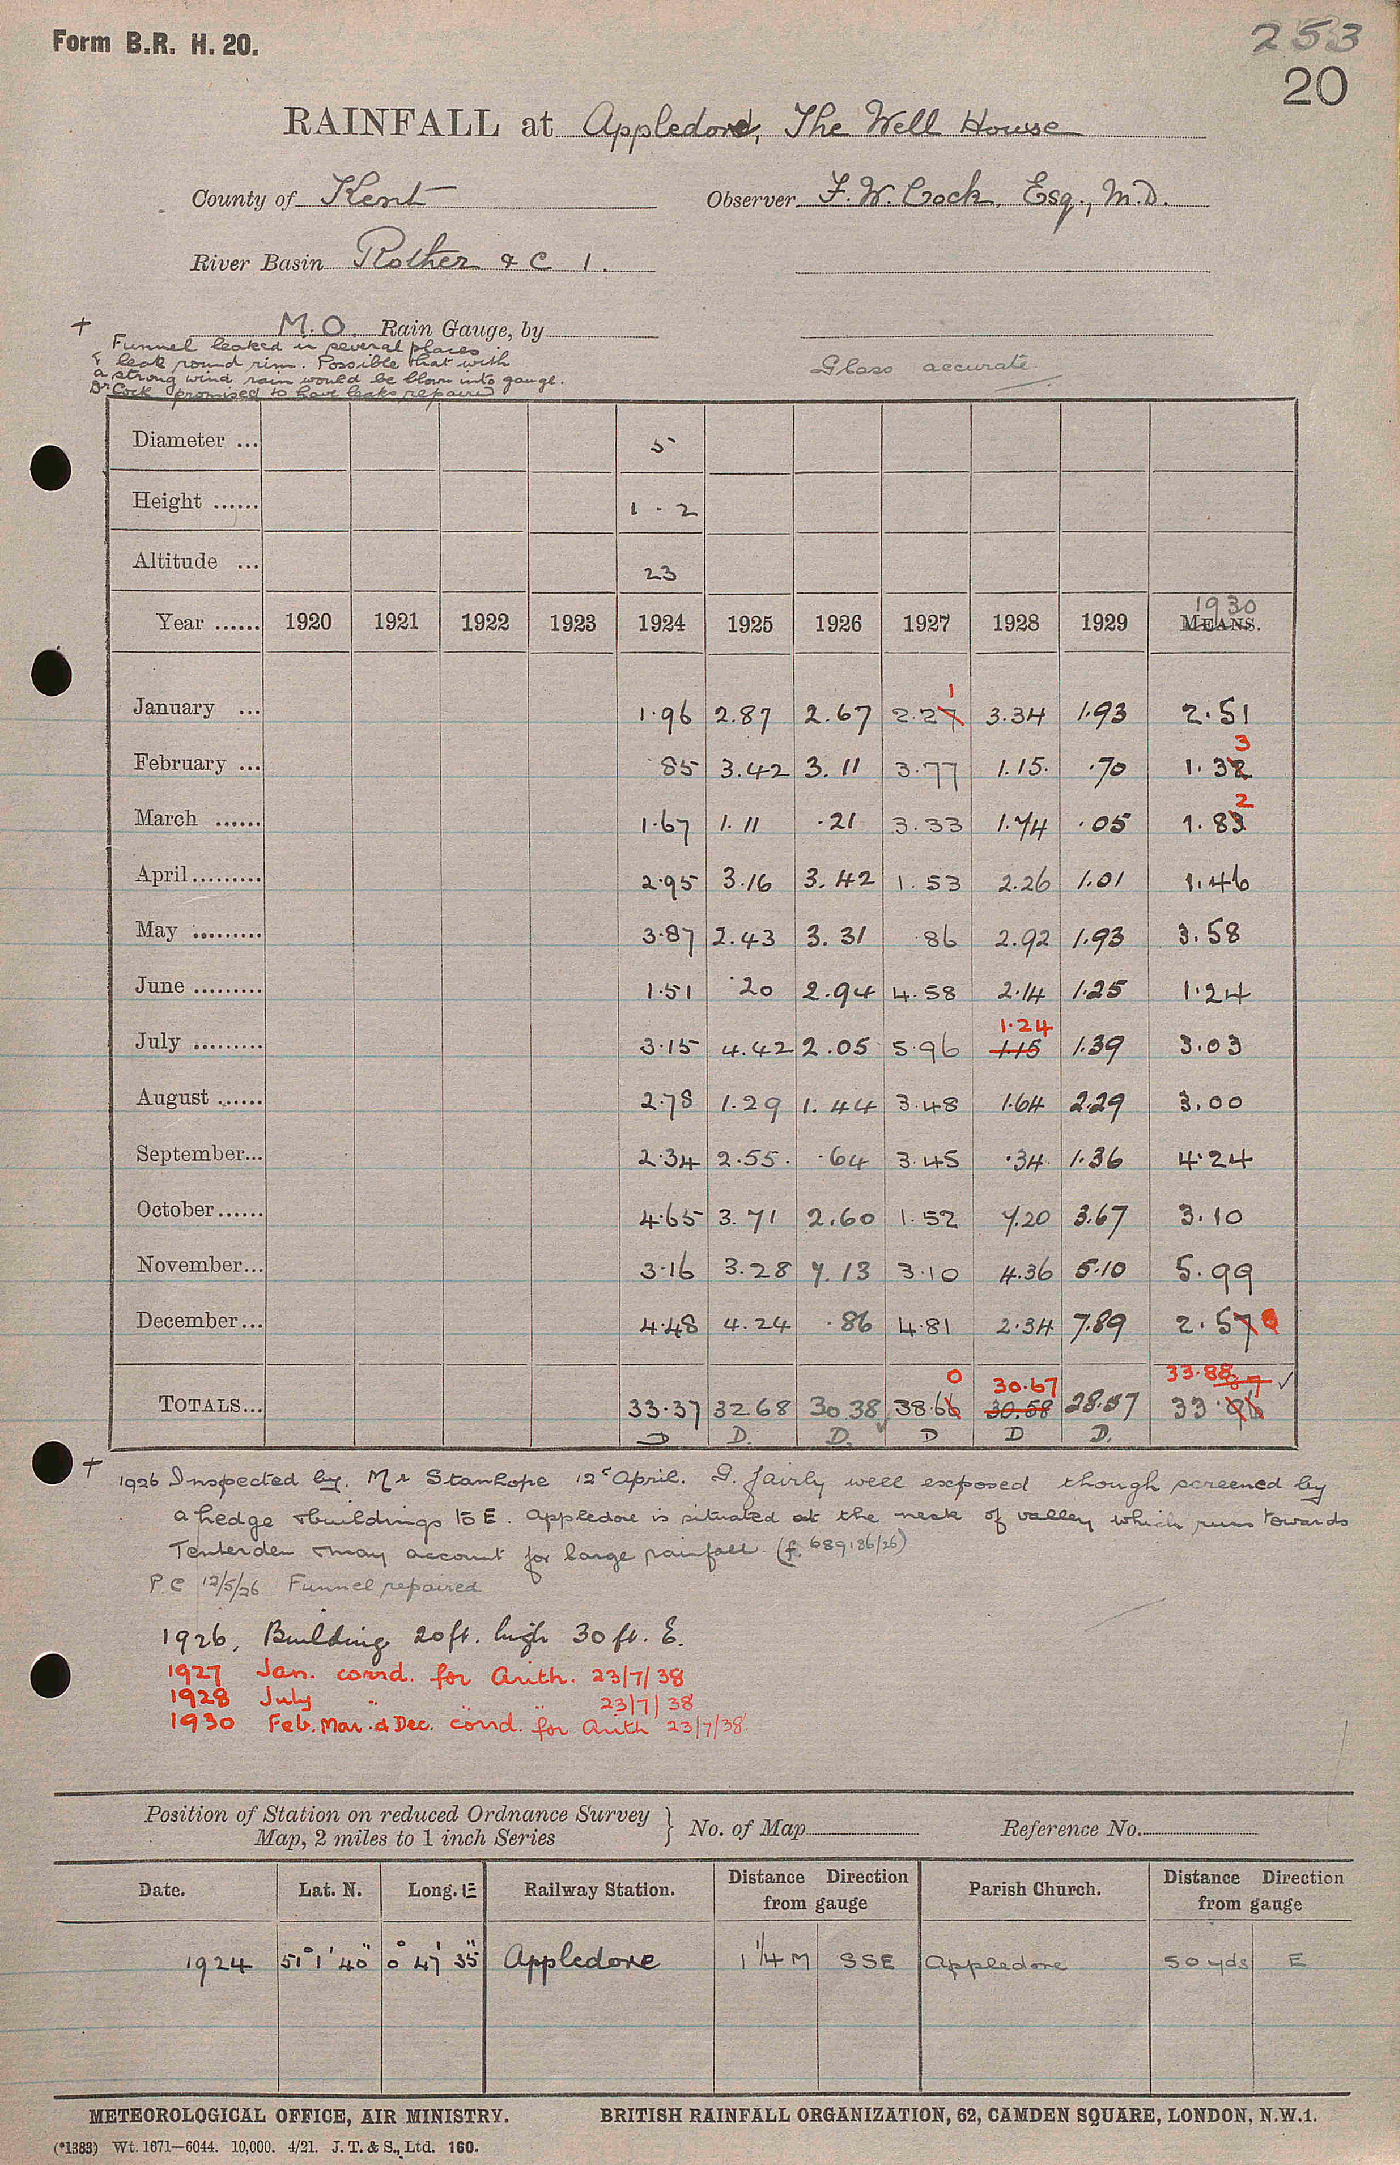 Form B.R. H. 20.
253
20
RAINFALL at Appledore, The Well House
County of Kent Observer F. W. Cock, Esq., M.D.
River Basin Rother & C 1.
+ M.O. Rain Gauge, by
Funnel leaked in several places
& leak round rim. Possible that with
a strong wind rain would be blown into gauge.
Dr Cock promised to have leaks repaired
Glass accurate.
Diameter ... 5
Height ...... 1 - 2
Altitude ... 23
Year ...... 1920 1921 1922 1923 1924 1925 1926 1927 1928 1929 MEANS. 1930
1
January ... 1.96 2.87 2.67 2.27 3.34 1.93 2.51
3
February ... .85 3.42 3.11 3.77 1.15 .70 1.32
2
March ...... 1.67 1.11 .21 3.33 1.74 .05 1.83
April......... 2.95 3.16 3.42 1.53 2.26 1.01 1.46
May ......... 3.87 2.43 3.31 .86 2.92 1.93 3.58
June ......... 1.51 .20 2.94 4.58 2.14 1.25 1.24
1.24
July ......... 3.15 4.42 2.05 5.96 1.15 1.39 3.03
August ...... 2.78 1.29 1.44 3.48 1.64 2.29 3.00
September... 2.34 2.55 .64 3.45 .34 1.36 4.24
October...... 4.65 3.71 2.60 1.52 7.20 3.67 3.10
November... 3.16 3.28 7.13 3.10 4.36 5.10 5.99
December... 4.48 4.24 .86 4.81 2.34 7.89 2.57
0 30.67 33.88 87 ✓
TOTALS... 33.37 32.68 30.38 38.66 30.58 28.57 33.96
D D. D. D D D.
+ 1926 Inspected by Mr Stanhope 12th April. G. fairly well exposed though screened by
a hedge & buildings to E. Appledore is situated at the neck of valley which runs towards
Tenterden & may account for large rainfall. (f. 689186/26)
P.C 12/5/26 Funnel repaired
1926, Building 20ft. high 30 ft. E.
1927 Jan. corrd. for Arith. 23/7/38
1928 July " " " 23/7/38
1930 Feb. Mar. & Dec. corrd. for Arith 23/7/38
Position of Station on reduced Ordnance Survey
Map, 2 miles to 1 inch Series } No. of Map Reference No.
Date. Lat. N. Long. E Railway Station. Distance Direction from gauge Parish Church. Distance Direction from gauge
1924 51° 1' 40" 0° 47' 35" Appledore 1 1/4 M SSE Appledore 50 yds E
METEOROLOGICAL OFFICE, AIR MINISTRY. BRITISH RAINFALL ORGANIZATION, 62, CAMDEN SQUARE, LONDON, N.W.1.
(*1383) Wt. 1671—6044. 10,000. 4/21. J. T. & S., Ltd. 160.